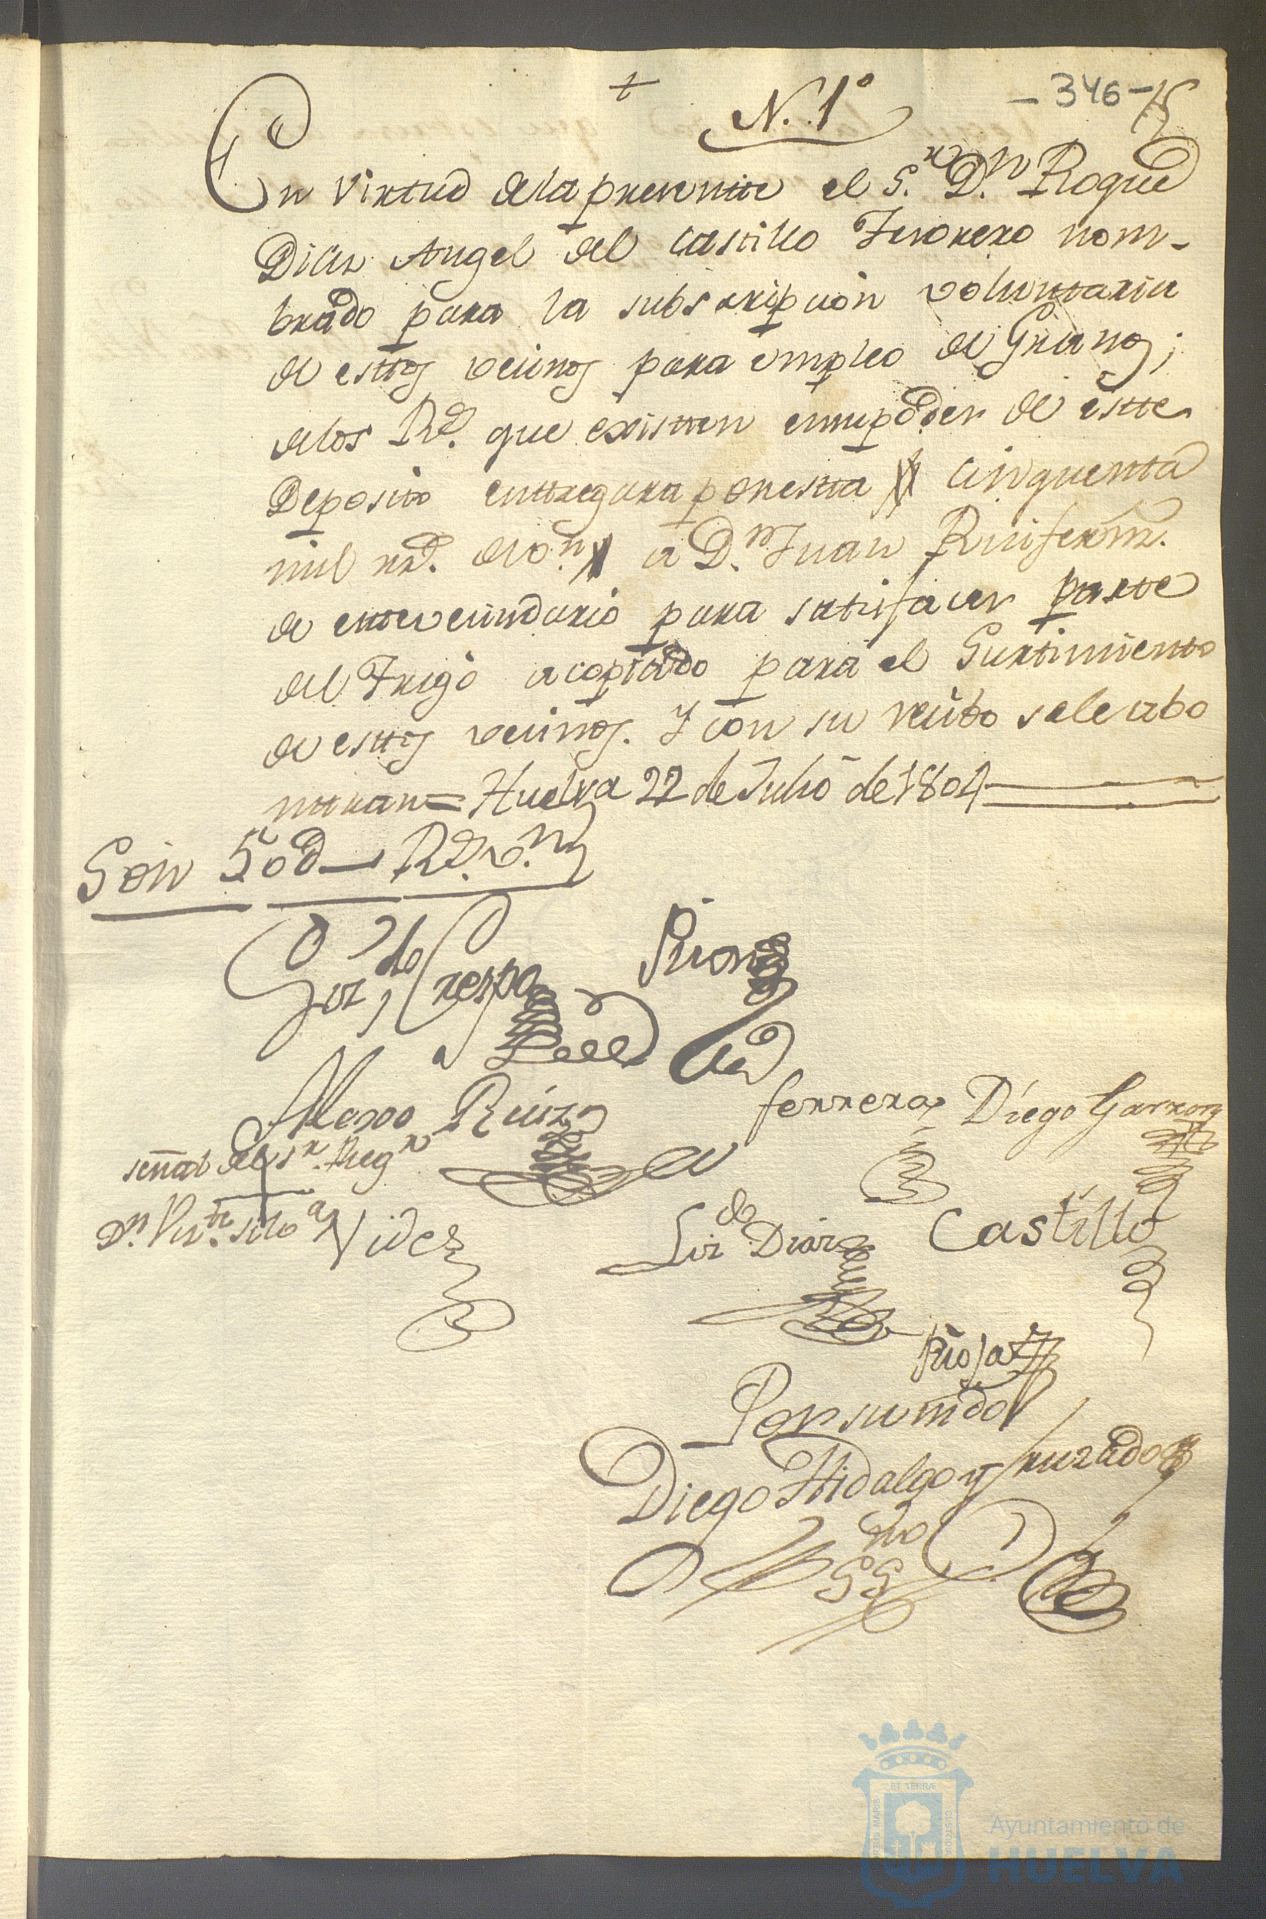 +
N. 1º
- 346 - 15
En Virtud dela presentte el S.or D.n Roque
Dias Angel del Castillo Tesorero nom-
brado para la subscripcion voluntaria
de esttos vecinos para empleo de Granos;
delos R.s que existten ensupoder de estte
Deposito enttregara por estta cinquenta
mil rr.s de v.on a D.n Juan Ruifernz.
de estte vecindario para satisfacer partte
del Trigo acopiado para el Surtimiento
de esttos vecinos. Y con su recibo sele abo
nttaran = Huelva 22 de Julio de 1804
Son 50 D R.s v.n
Liz.do Crespo
Alonso Ruiz
ferrera
Diego Garzon
señal del S.r Reg.r
D.n Vi.te
Videz
Liz.do Diaz
Castillo
Rioja
Por su mdo
Diego Hidalgo y Cruzado
no
SS
ET TERRÆ
Ayuntamiento de
HUELVA